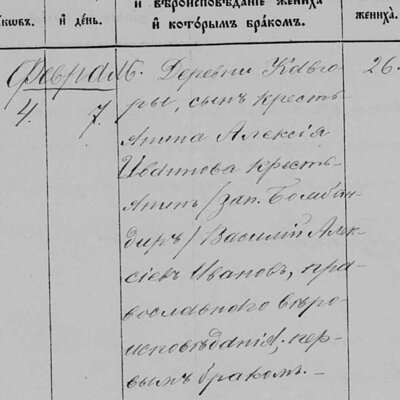 и вѣроисповѣданіе жениха
и которымъ бракомъ.
и день.
жениха.
Февраль.
4. 7.
Деревни Кавго-
ры, сынъ кресть-
янина Алексія
Иванова кресть-
янинъ /зап. Бомбан-
диръ/ Василій Алек-
сіевъ Ивановъ, пра-
вославнаго вѣро-
исповѣданія, пер-
вымъ бракомъ. —
26.